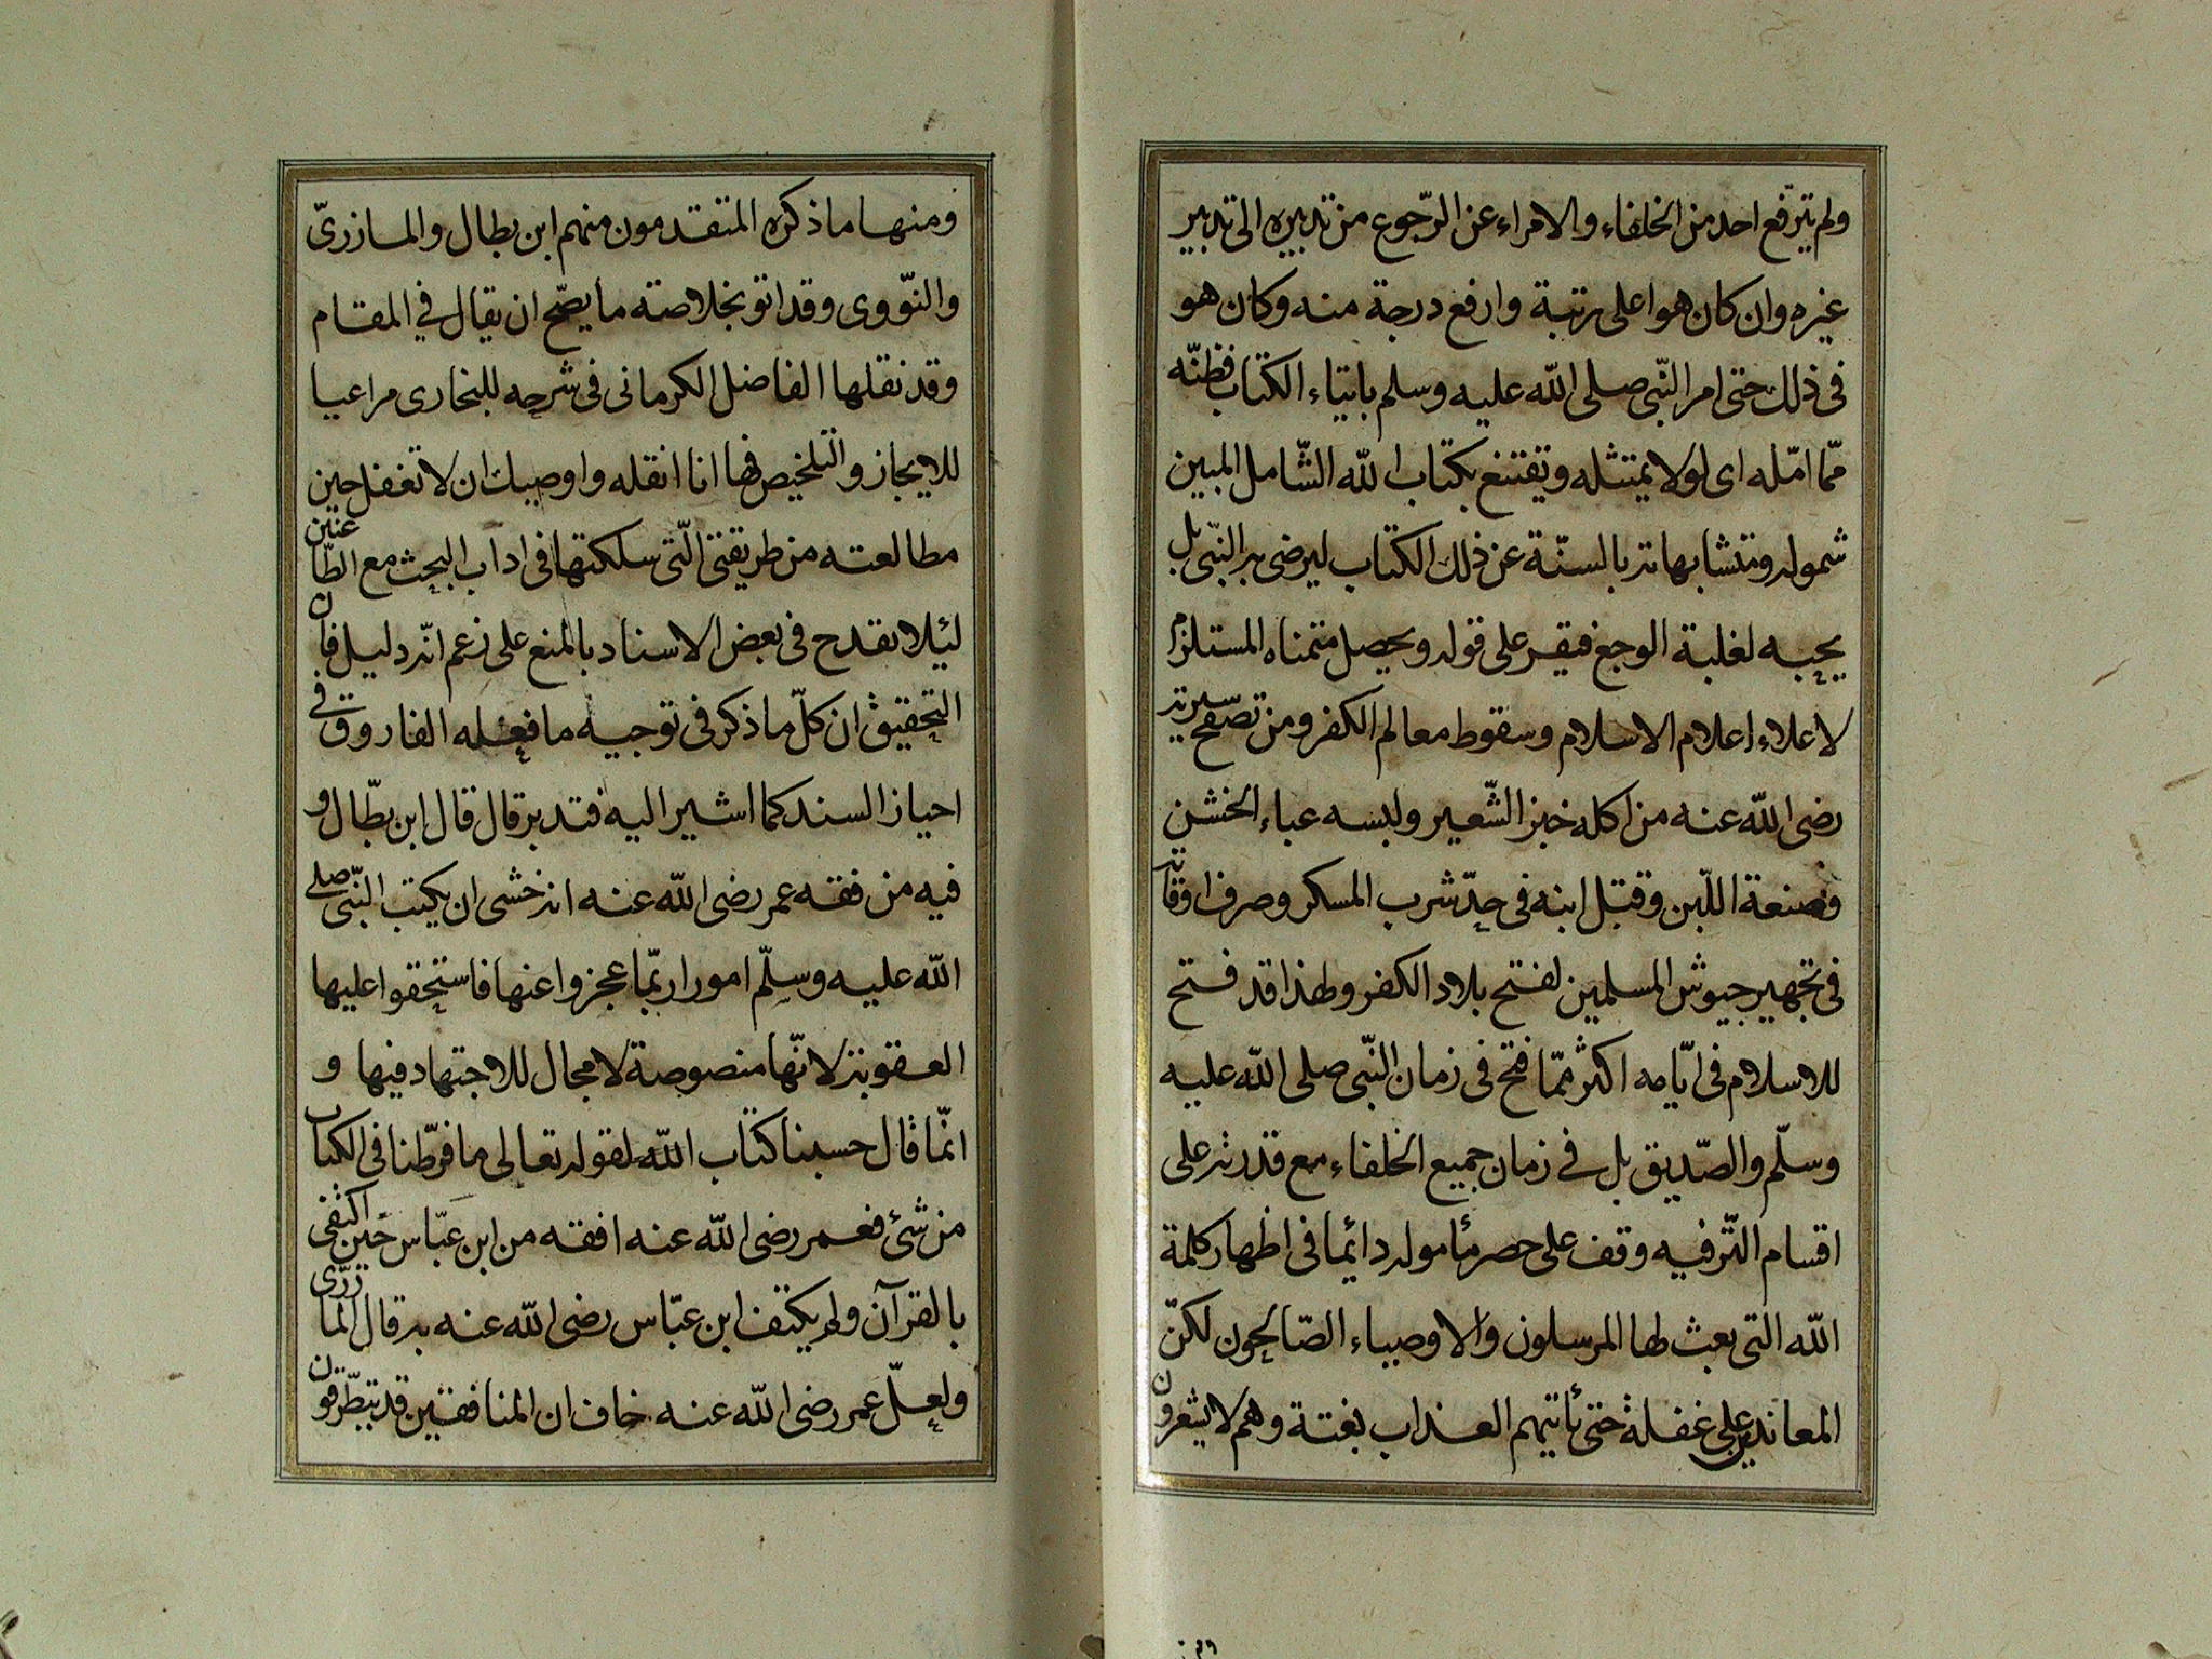 ولم يترفّع احد من الخلفاء والامراء عن الرّجوع من تدبيره الى تدبير
غيره وان كان هو اعلى رتبة وارفع درجة منه وكان هو
فى ذلك حتى امر النّبى صلى الله عليه وسلم بايتاء الكتاب فظنّه
ممّا امّله اى لولا يمتثله ويقتنع بكتاب الله الشّامل المبين
شموله ومتشابهاته بالسنّة عن ذلك الكتاب ليرضى به النّبى بل
يحبه لغلبة الوجع فيقر على قوله ويحصل متمناه المستلزم
لاعلاء اعلام الاسلام وسقوط معالم الكفر ومن تصفّح سيرته
رضى الله عنه من اكله خبز الشّعير ولبسه عباء الخشن
وصنعة اللّبن وقتل ابنه فى حدّ شرب المسكر وصرف اوقاته
فى تجهيز جيوش المسلمين لفتح بلاد الكفر ولهذا قد فتح
للاسلام فى ايّامه اكثر ممّا فتح فى زمان النّبى صلى الله عليه
وسلّم والصّديق بل فى زمان جميع الخلفاء مع قدرته على
اقسام التّرفيه وقف على حصر مأموله دائما فى اظهار كلمة
الله التى بعث لها المرسلون والاوصياء الصّالحون لكنّ
المعاندين على غفلة حتى تأتيهم العذاب بغتة وهم لا يشعرون
ومنها ما ذكره المتقدمون منهم ابن بطال والمازرىّ
والنّووى وقد اتو بخلاصته ما يصّح ان يقال فى المقام
وقد نقلها الفاضل الكرمانى فى شرحه للبخارى مراعيا
للايجاز والتلخيص فها انا انقله واوصيك ان لا تغفل حين
مطالعته من طريقتى الّتى سلكتها فى اداب البحث مع الطّاعنين
لئيلا تقدح فى بعض الاسناد بالمنع على زعم انّه دليل فان
التحقيق ان كلّ ما ذكر فى توجيه ما فعله الفاروق فى
احياز السند كما اشير اليه فتدبر قال قال ابن بطّال و
فيه من فقه عمر رضى الله عنه انه خشى ان يكتب النّبى صلى
الله عليه وسلّم امورا ربّما عجزوا عنها فاستحقوا عليها
العقوبة لانّها منصوصة لا مجال للاجتهاد فيها و
انّما قال حسبنا كتاب الله لقوله تعالى ما فرّطنا فى الكتاب
من شئ فعمر رضى الله عنه افقه من ابن عبّاس حين اكتفى
بالقرآن ولم يكتف ابن عبّاس رضى الله عنه به قال المازرّى
ولعلّ عمر رضى الله عنه خاف ان المنافقين قد يتطّرقون